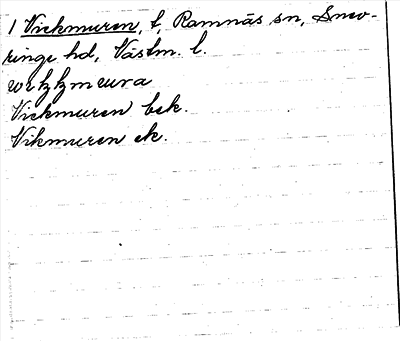 1 Vickmuren, t, Ramnäs sn, Snev-
ringe hd, Västm. l.
Vickmuren bek.
Vikmuren ek.